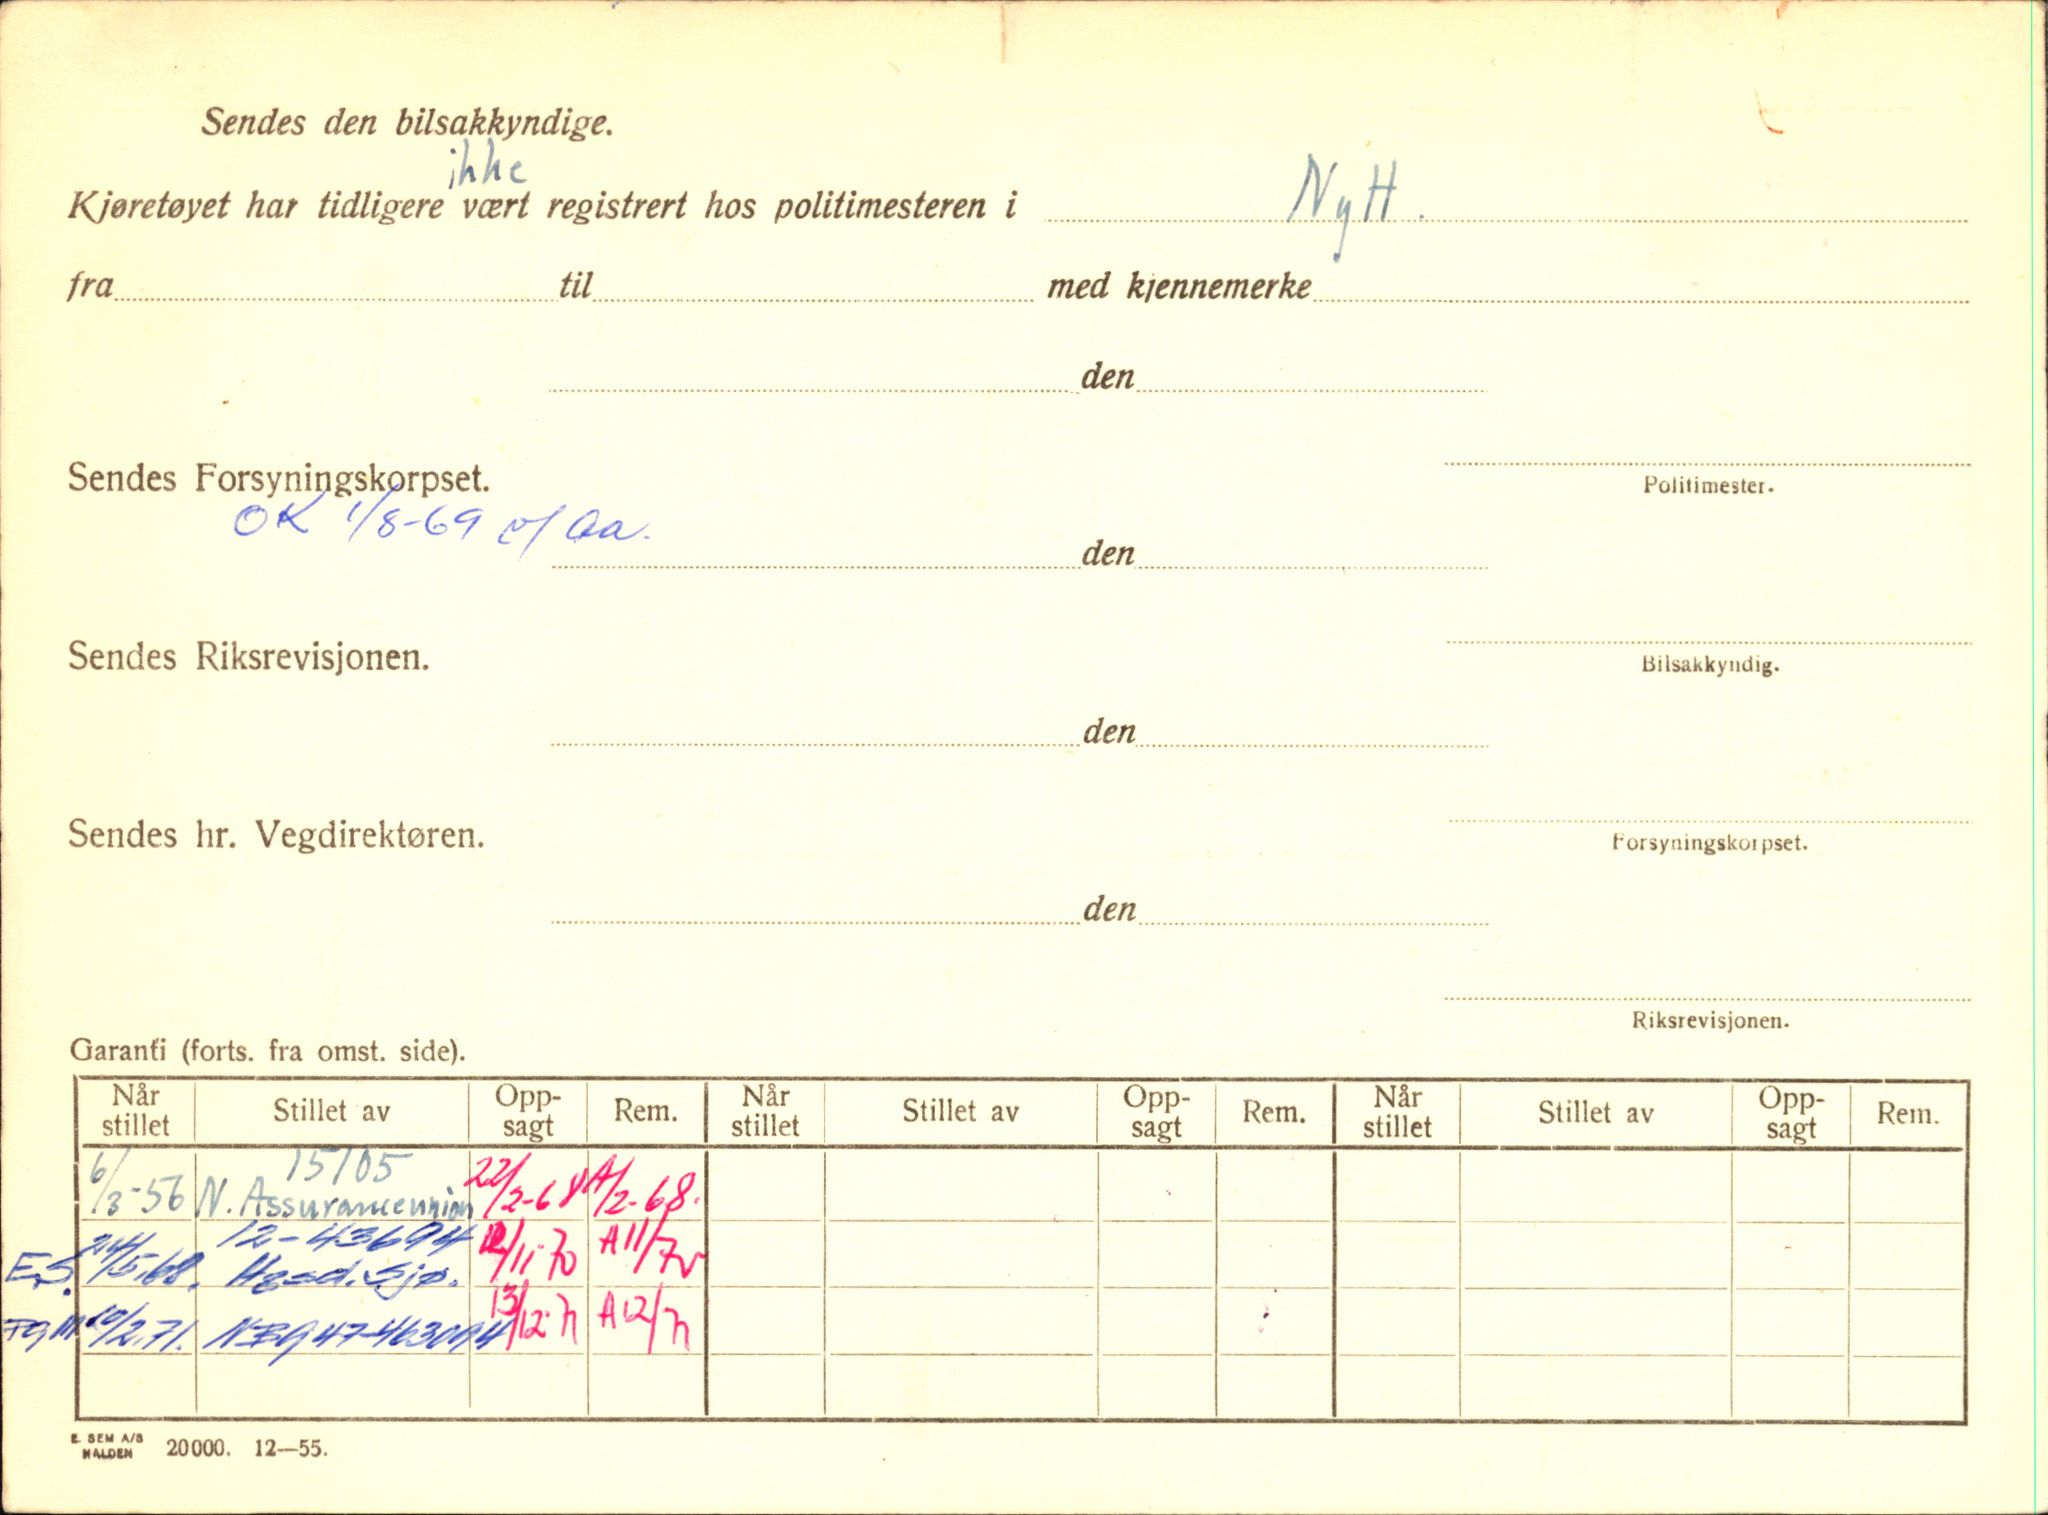 Sendes den bilsakkyndige.
ikke
Kjøretøyet har tidligere vært registrert hos politimesteren i Nytt.
fra til med kjennemerke
den
Sendes Forsyningskorpset.
Politimester.
OK 1/8-69 Aa.
den
Sendes Riksrevisjonen.
Bilsakkyndig.
den
Sendes hr. Vegdirektøren.
Forsyningskorpset.
den
Riksrevisjonen.
Garanti (forts. fra omst. side).
Når stillet Stillet av Opp-sagt Rem. Når stillet Stillet av Opp-sagt Rem. Når stillet Stillet av Opp-sagt Rem.
15105
6/3-56 N. Assuranceunion 22/2-68 A/2-68.
12-43694
E.S. 24/5.68. Hgsd. Sjø. 11-70 A11/70
10/2.71. 13/12-71 A12/71
E. SEM A/S
HALDEN 20000. 12—55.